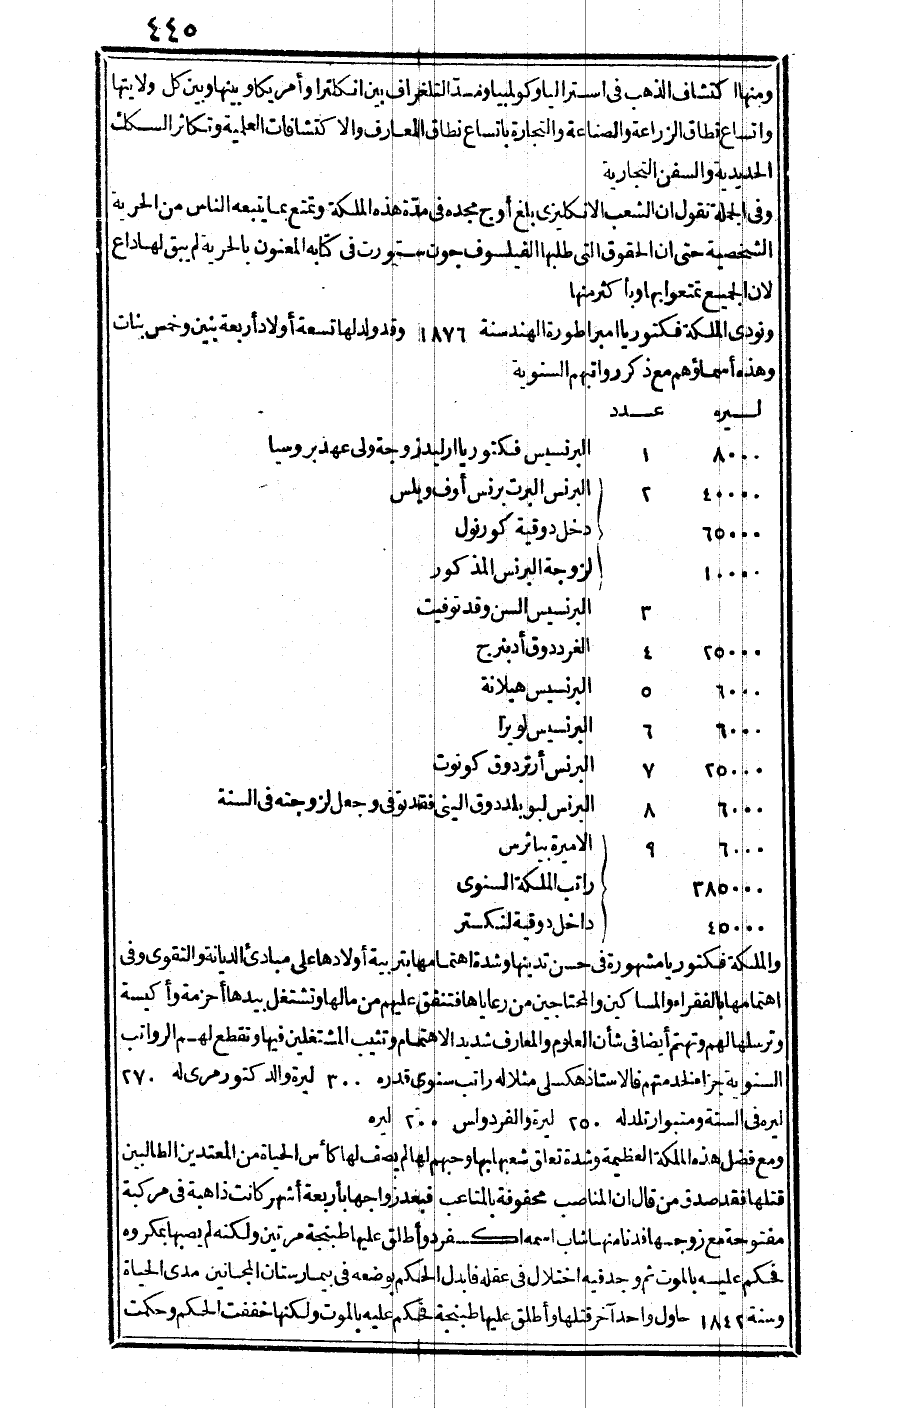 ٤٤٥
ومنها اكتشاف الذهب في استراليا وكولمبيا ومدّ التلغراف بين انكلترا وأمريكا وبينها وبين كل ولايتها
واتساع نطاق الزراعة والصناعة والتجارة باتساع نطاق المعارف والاكتشافات العلمية وتكاثر السكك
الحديدية والسفن التجارية
وفي الجملة نقول ان الشعب الانكليزي بلغ أوج مجده في مدّة هذه الملكة وتمتع بما يتبعه الناس من الحرية
الشخصية حتى ان الحقوق التي طلبها الفيلسوف جون ستيورت في كتابه المعنون بالحرية لم يبق لها داع
لان الجميع تمتعوا بها وبأكثر منها
ونودي الملكة فكتوريا امبراطورة الهند سنة ١٨٧٦ وقد ولد لها تسعة أولاد أربعة بنين وخمس بنات
وهذه أسماؤهم مع ذكر رواتبهم السنوية
ليره عدد
٨٠٠٠ ١ البرنسيس فكتوريا ارليد زوجة ولي عهد بروسيا
٤٠٠٠٠ ٢ البرنس البرت برنس أوف ويلس
٦٥٠٠٠ دخل دوقية كورنول
١٠٠٠٠ لزوجة البرنس المذكور
٣ البرنسيس السن وقد توفيت
٢٥٠٠٠ ٤ الغرددوق أدنبرج
٦٠٠٠ ٥ البرنسيس هيلانة
٦٠٠٠ ٦ البرنسيس لويزا
٢٥٠٠٠ ٧ البرنس أرثر دوق كونوت
٦٠٠٠ ٨ البرنس ليوبلد دوق البني فقد توفي وجعل لزوجته في السنة
٦٠٠٠ ٩ الاميرة بياترس
٣٨٥٠٠٠ راتب الملكة السنوي
٤٥٠٠٠ داخل دوقية لنكستر
والملكة فكتوريا مشهورة في حسن تدينها وشدة اهتمامها بتربية أولادها على مبادئ الديانة والتقوى وفي
اهتمامها بالفقراء والمساكين والمحتاجين من رعاياها فتنفق عليهم من مالها وتشتغل بيدها أحزمة وأكيسة
وترسلها لهم وتهتم أيضا في شأن العلوم والمعارف شديد الاهتمام وتثيب المشتغلين فيها وتقطع لهم الرواتب
السنوية جزاء لخدمتهم فالاستاذ هكسلي مثلا له راتب سنوي قدره ٣٠٠ ليرة والدكتور مري له ٢٧٠
ليره في السنة ومتيوارنلد له ٢٥٠ ليرة والفرد ولس ٢٠٠ ليره
ومع فضل هذه الملكة العظيمة وشدة تعلق شعبها بها وحبهم لها لم يصف لها كأس الحياة من المعتدين الطالبين
قتلها فقد صدق من قال ان المناصب محفوفة بالمتاعب فبعد زواجها بأربعة أشهر كانت ذاهبة في مركبة
مفتوحة مع زوجها فدنا منها شاب اسمه اكسفرد وأطلق عليها طبنجة مرتين ولكنه لم يصبها بمكروه
فحكم عليه بالموت ثم وجد فيه اختلال في عقله فابدل الحكم بوضعه في بيمارستان المجانين مدى الحياة
وسنة ١٨٤٢ حاول واحد آخر قتلها وأطلق عليها طبنجة فحكم عليه بالموت ولكنها خففت الحكم وحكمت